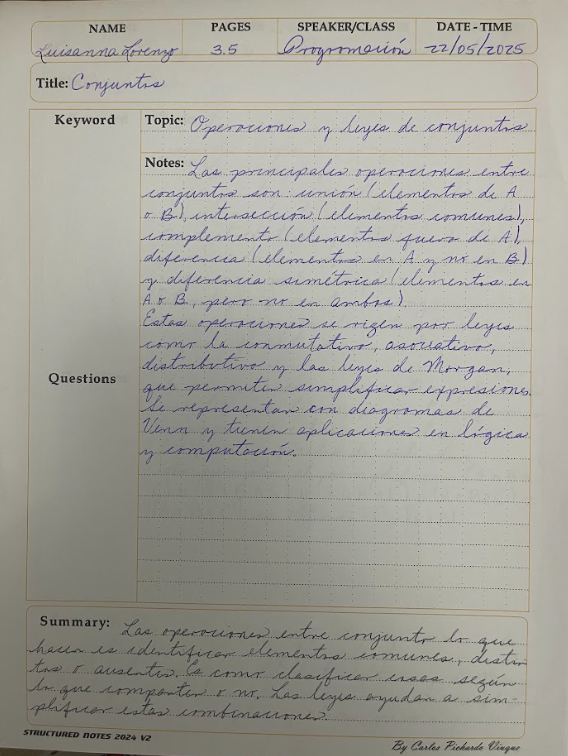 NAME PAGES SPEAKER/CLASS DATE - TIME
Luisanna Lorenzo 3.5 Programación 22/05/2025
Title: Conjuntos
Keyword
Topic: Operaciones y leyes de conjuntos
Notes: Las principales operaciones entre
conjuntos son: unión (elementos de A
o B), intersección (elementos comunes),
complemento (elementos fuera de A),
diferencia (elementos en A y no en B)
y diferencia simétrica (elementos en
A o B, pero no en ambos).
Estas operaciones se rigen por leyes
como la conmutativa, asociativa,
distributiva y las leyes de Morgan,
Questions
que permiten simplificar expresiones.
Se representan con diagramas de
Venn y tienen aplicaciones en lógica
y computación.
Summary: Las operaciones entre conjunto lo que
hacen es identificar elementos comunes, distin
tos o ausentes. Es como clasificar cosas según
lo que comparten o no. Las leyes ayudan a sim-
plificar estas combinaciones.
STRUCTURED NOTES 2024 V2
By Carlos Pichardo Viuque